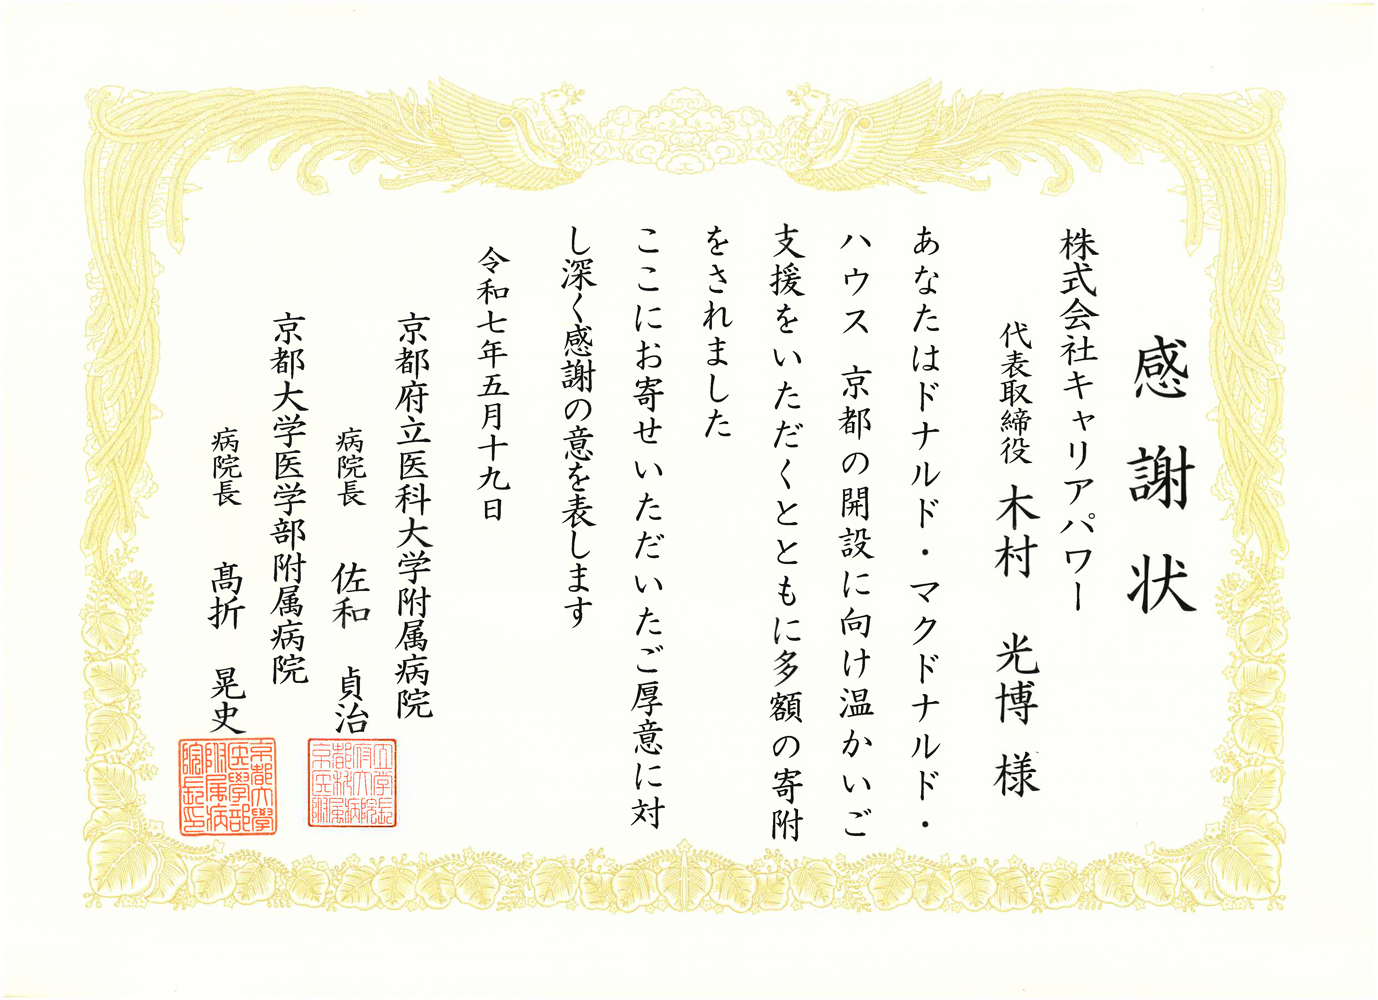 感謝状
株式会社キャリアパワー
代表取締役 木村 光博 様
あなたはドナルド・マクドナルド・
ハウス 京都の開設に向け温かいご
支援をいただくとともに多額の寄附
をされました
ここにお寄せいただいたご厚意に対
し深く感謝の意を表します
令和七年五月十九日
京都府立医科大学附属病院
病院長 佐和 貞治
京都大学医学部附属病院
病院長 髙折 晃史
京都大學
医學部
附属病
院長之印